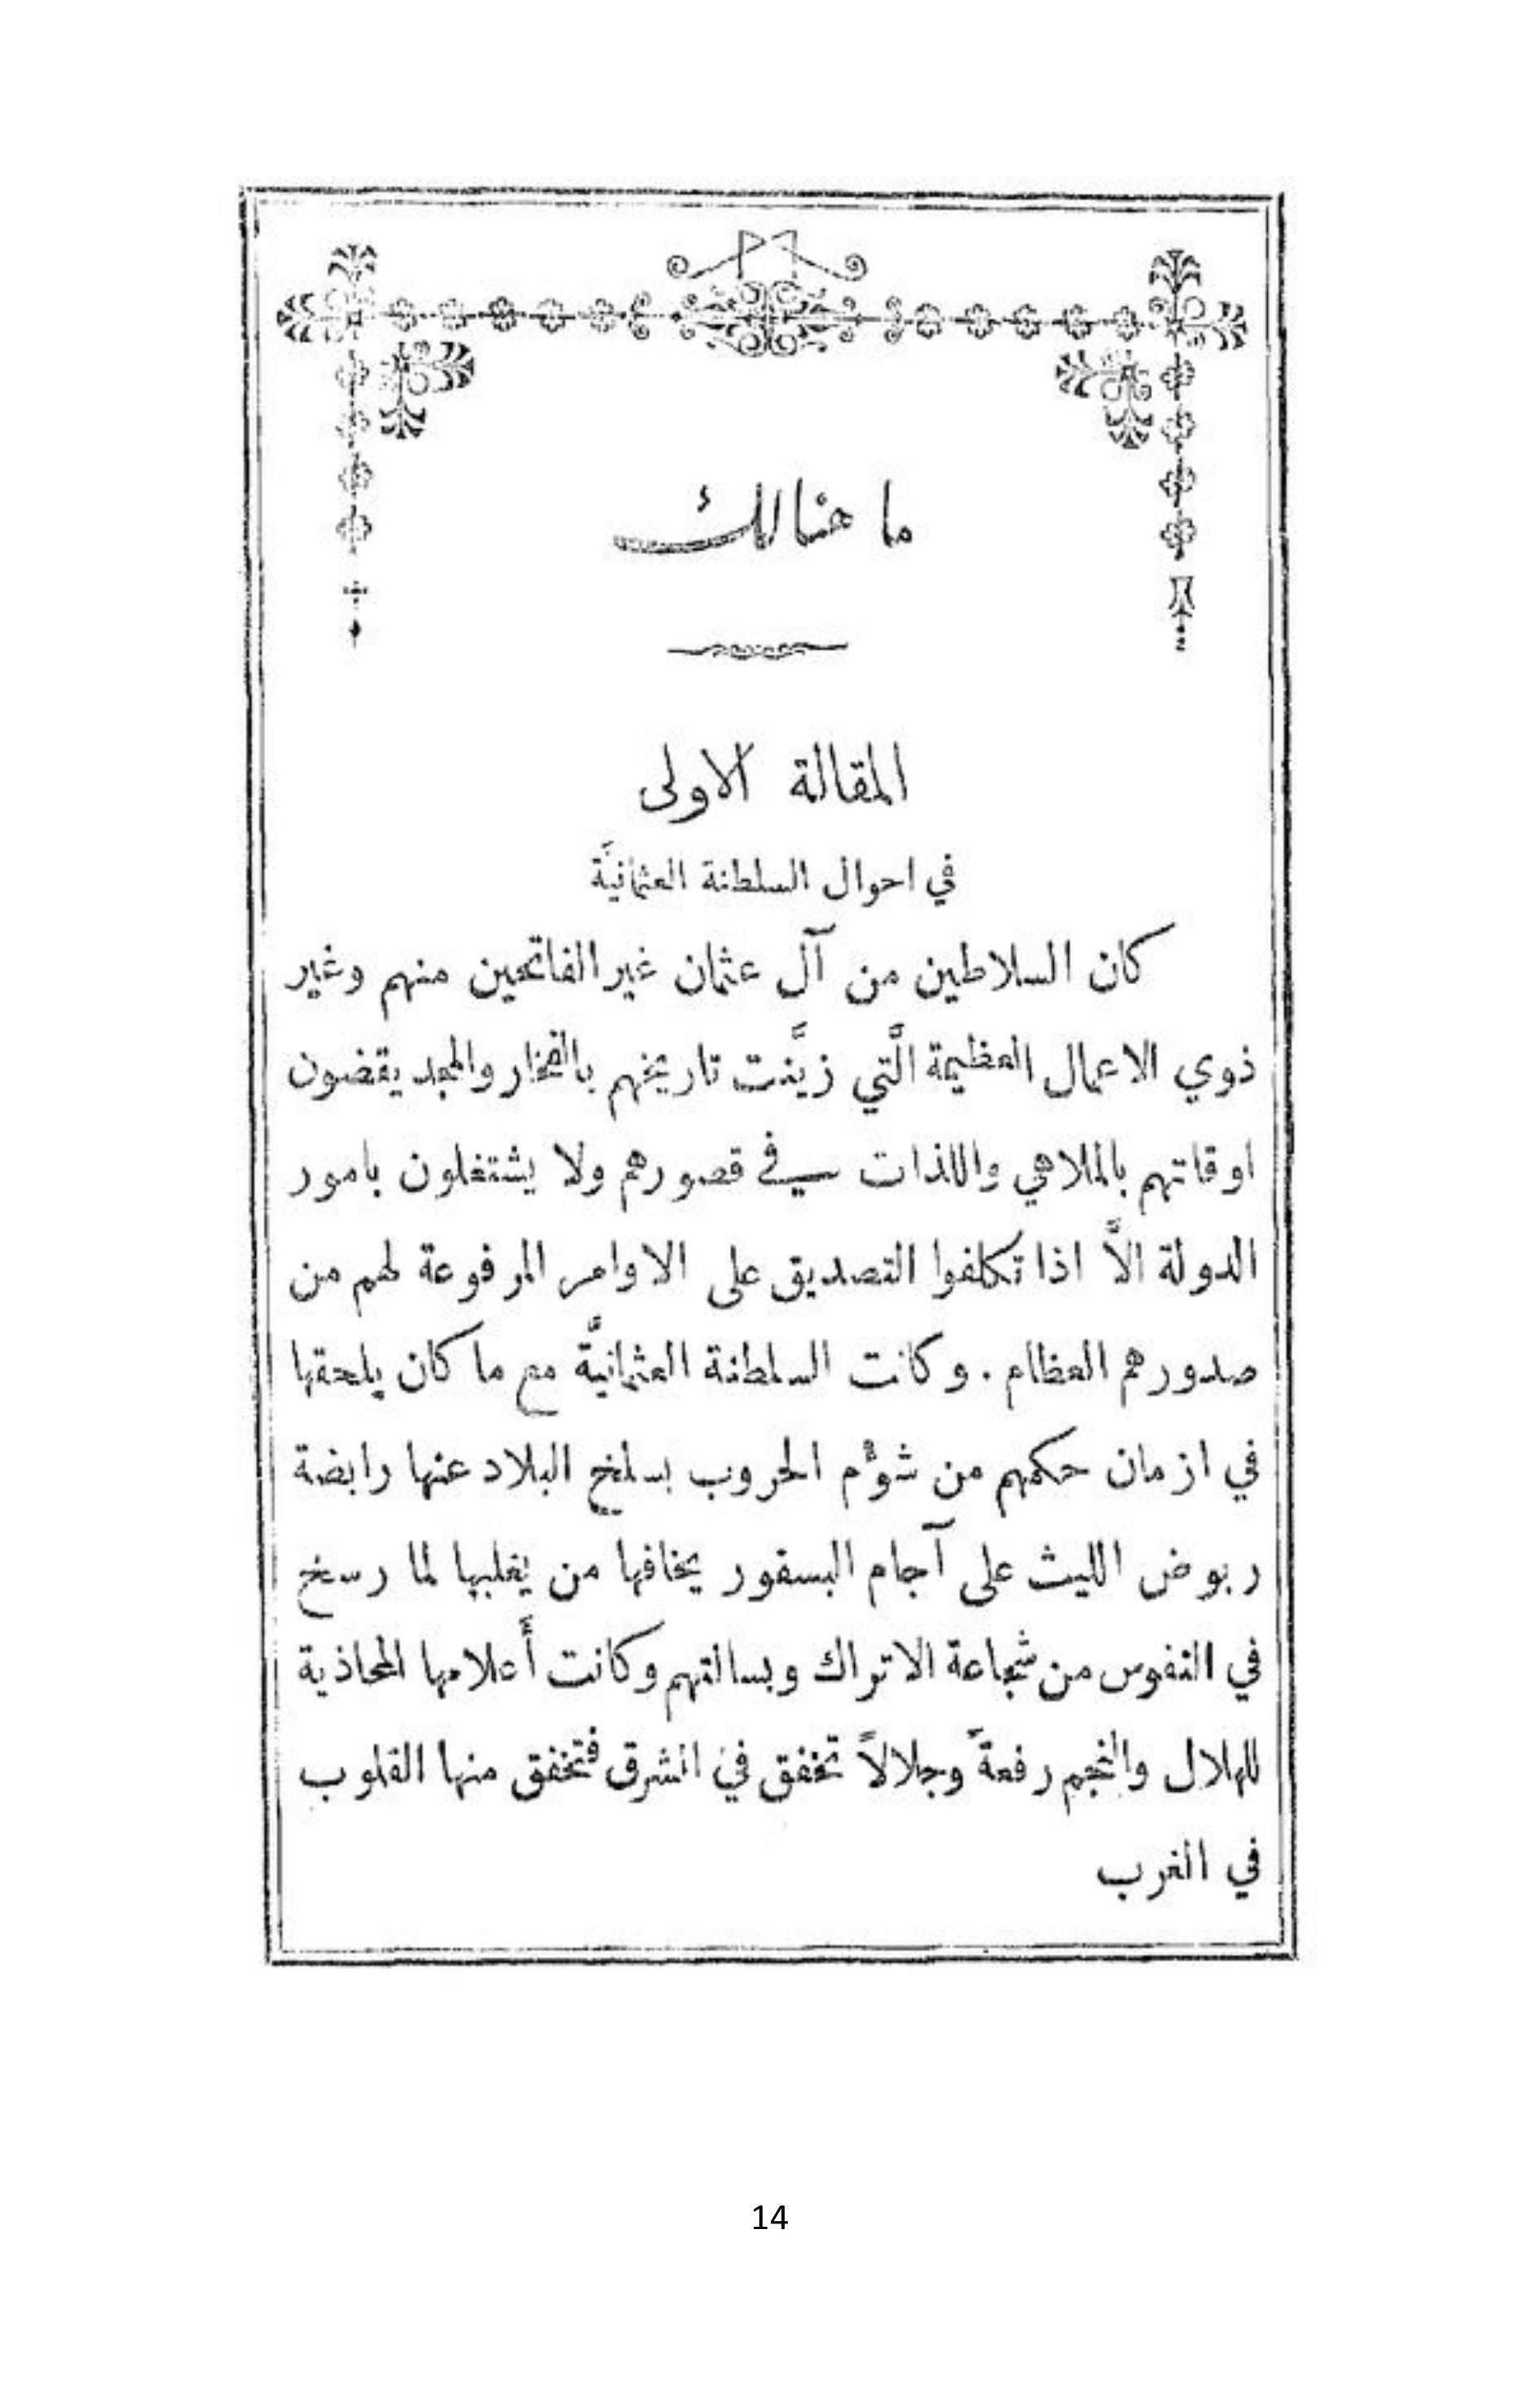 ما هنالك
المقالة الاولى
في احوال السلطنة العثمانيَّة
كان السلاطين من آل عثمان غير الفاتحين منهم وغير
ذوي الاعمال العظيمة الَّتي زيَّنت تاريخهم بالفخار والمجد يقضون
اوقاتهم بالملاهي واللذات في قصورهم ولا يشتغلون بامور
الدولة الاَّ اذا تكلفوا التصديق على الاوامر المرفوعة لهم من
صدورهم العظام . وكانت السلطنة العثمانيَّة مع ما كان يلحقها
في ازمان حكمهم من شؤْم الحروب بسلخ البلاد عنها رابضة
ربوض الليث على آجام البسفور يخافها من يغلبها لما رسخ
في النفوس من شجاعة الاتراك وبسالتهم وكانت أَعلامها المحاذية
للهلال والنجم رفعةً وجلالاً تخفق في الشرق فتخفق منها القلوب
في الغرب
14